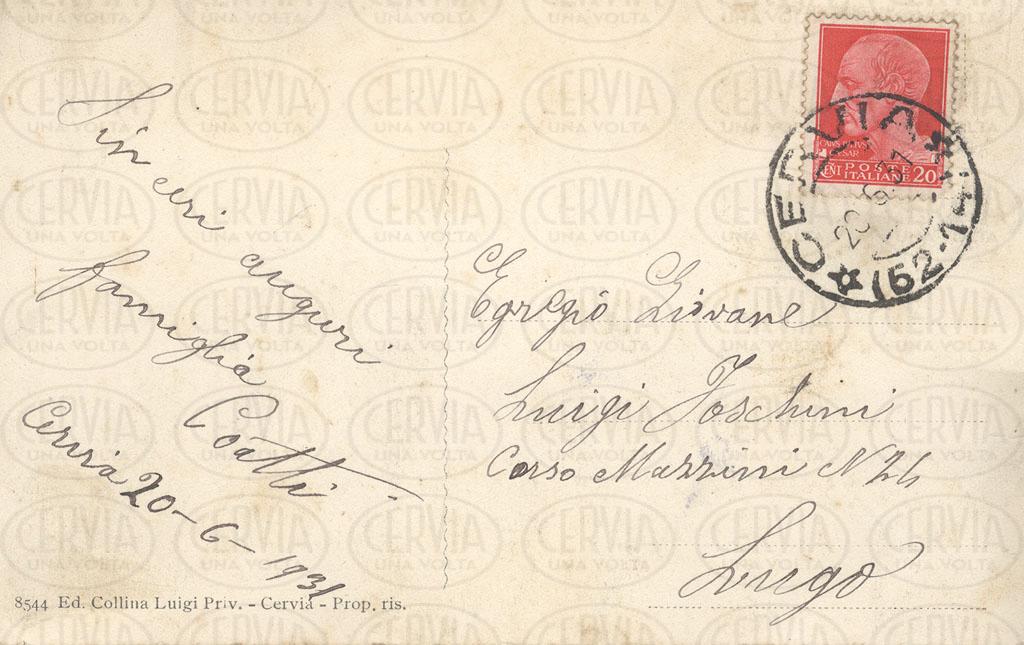 Sinceri auguri
famiglia
Coatti
Cervia 20-6-1931
8544 Ed. Collina Luigi Priv. - Cervia - Prop. ris.
POSTE
ITALIANE
CENT 20
CERVIA
(52-14)
Egregio Giovane
Luigi Foschini
Corso Mazzini N 26
Lugo
CERVIA
UNA VOLTA